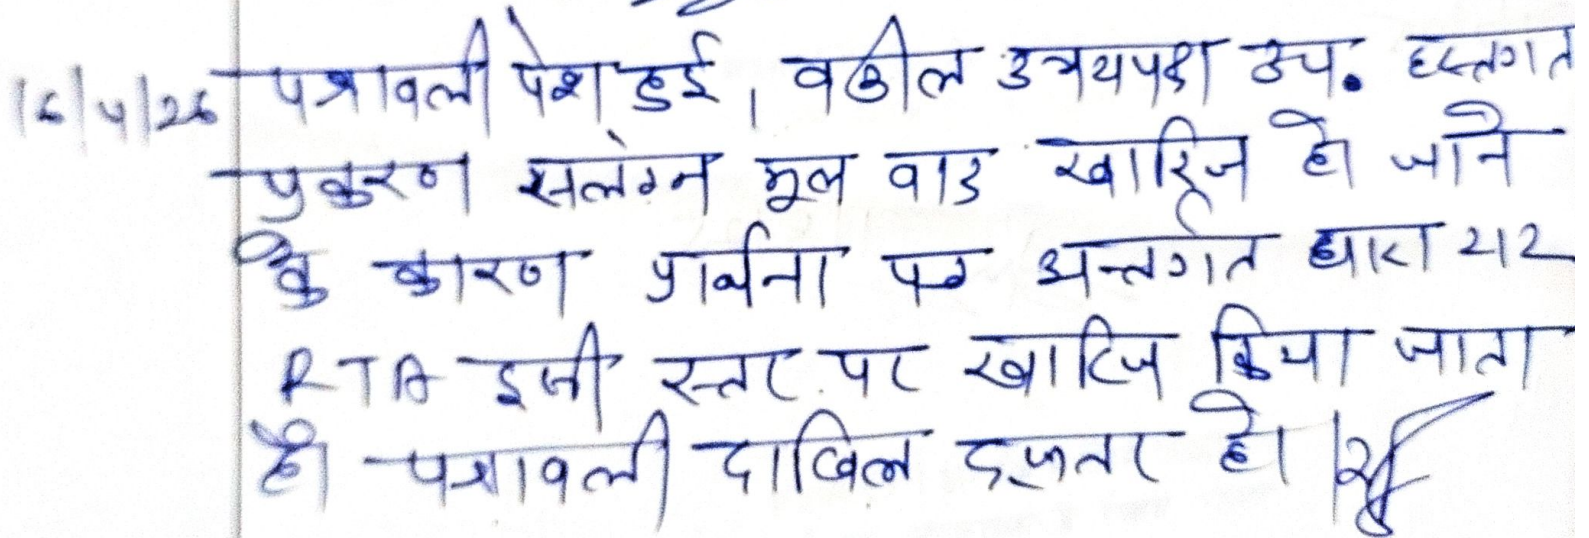 16/4/26 पत्रावली पेश हुई, वकील उभयपक्ष उप. हस्तगत
प्रकरण सलंग्न मूल वाद खारिज हो जाने
के कारण प्रार्थना पत्र अन्तर्गत धारा 212
RTA इसी स्तर पर खारिज किया जाता
है। पत्रावली दाखिल दफ्तर हो।